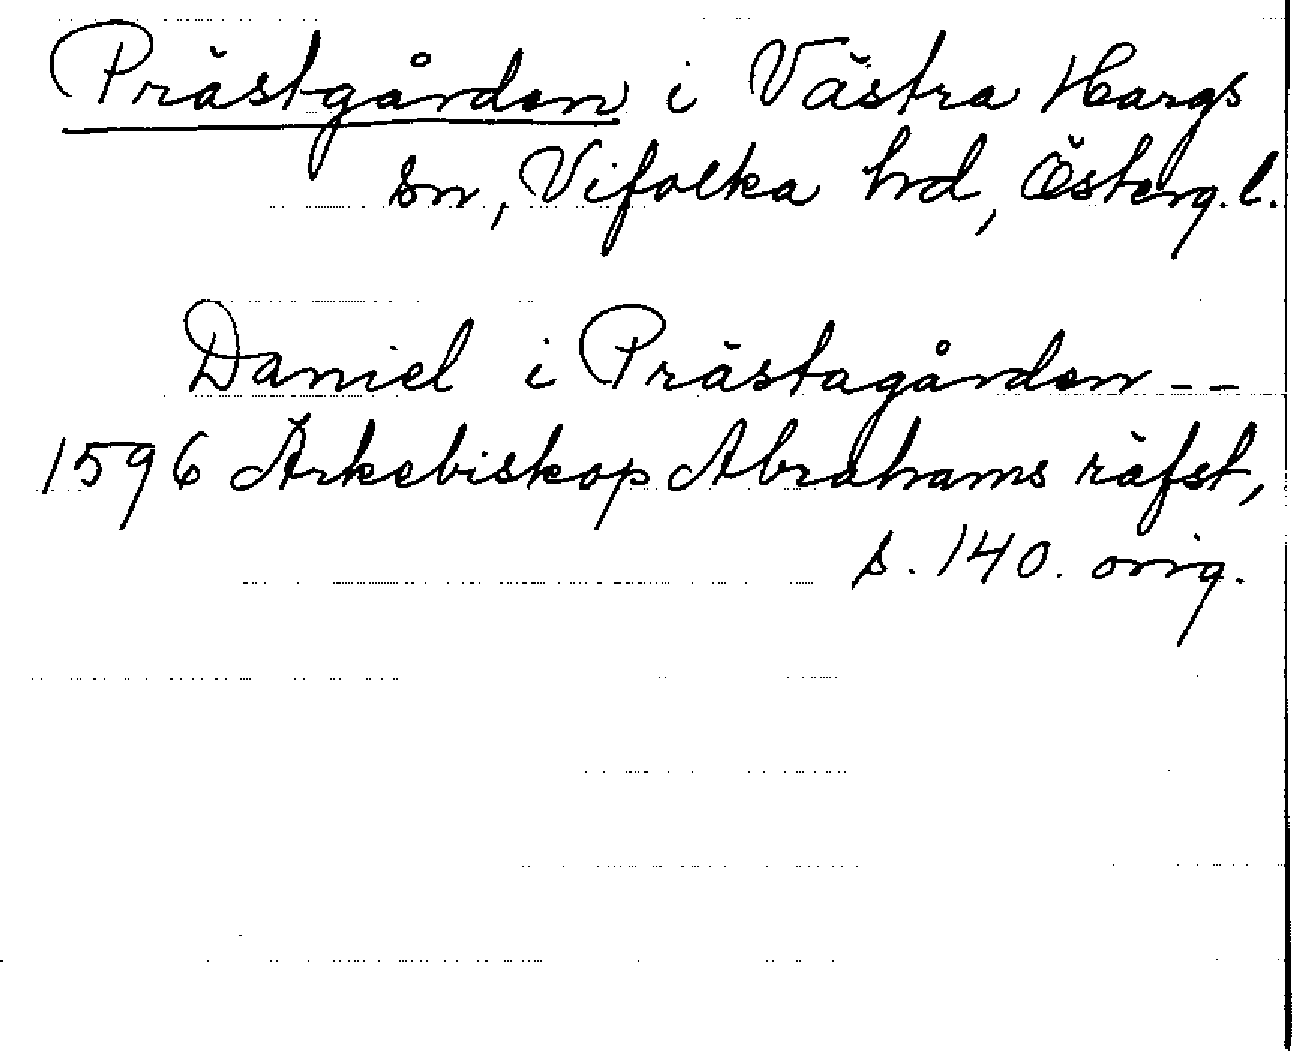 Prästgården i Västra Hargs
sn, Vifolka hd, Österg. l.
Daniel i Prästagården --
1596 Ärkebiskop Abrahams räfst,
s. 140. orig.